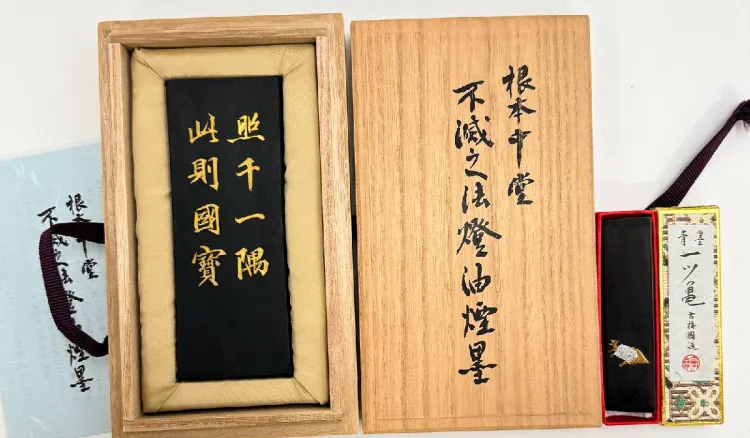 照千一隅
此則國寶
根本中堂
不滅之法燈油煙墨
根本中堂
不滅之法燈油煙墨
青墨
一ツ亀
古梅園造